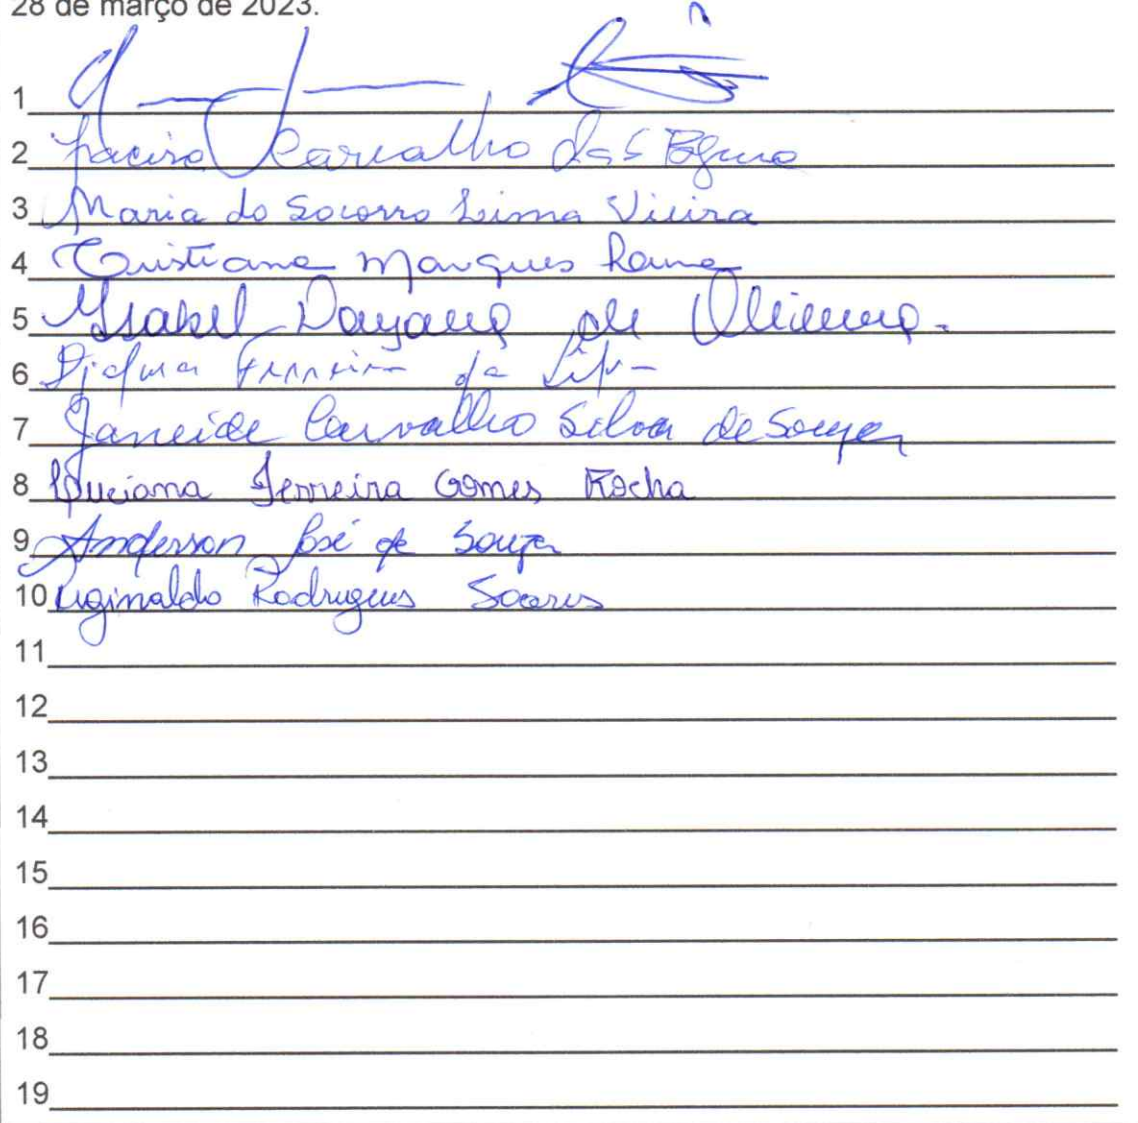 28 de março de 2023.
1
2 Jacira Carvalho das
3 Maria do Socorro Lima Vieira
4 Cristiana Marques
5 Ysabel Dayane de Oliveira.
6 Djalma Ferreira da Silva
7 Janeide Carvalho Silva de Souza
8 Luciana Ferreira Gomes Rocha
9 Anderson José de Souza
10 Reginaldo Rodrigues Soares
11
12
13
14
15
16
17
18
19